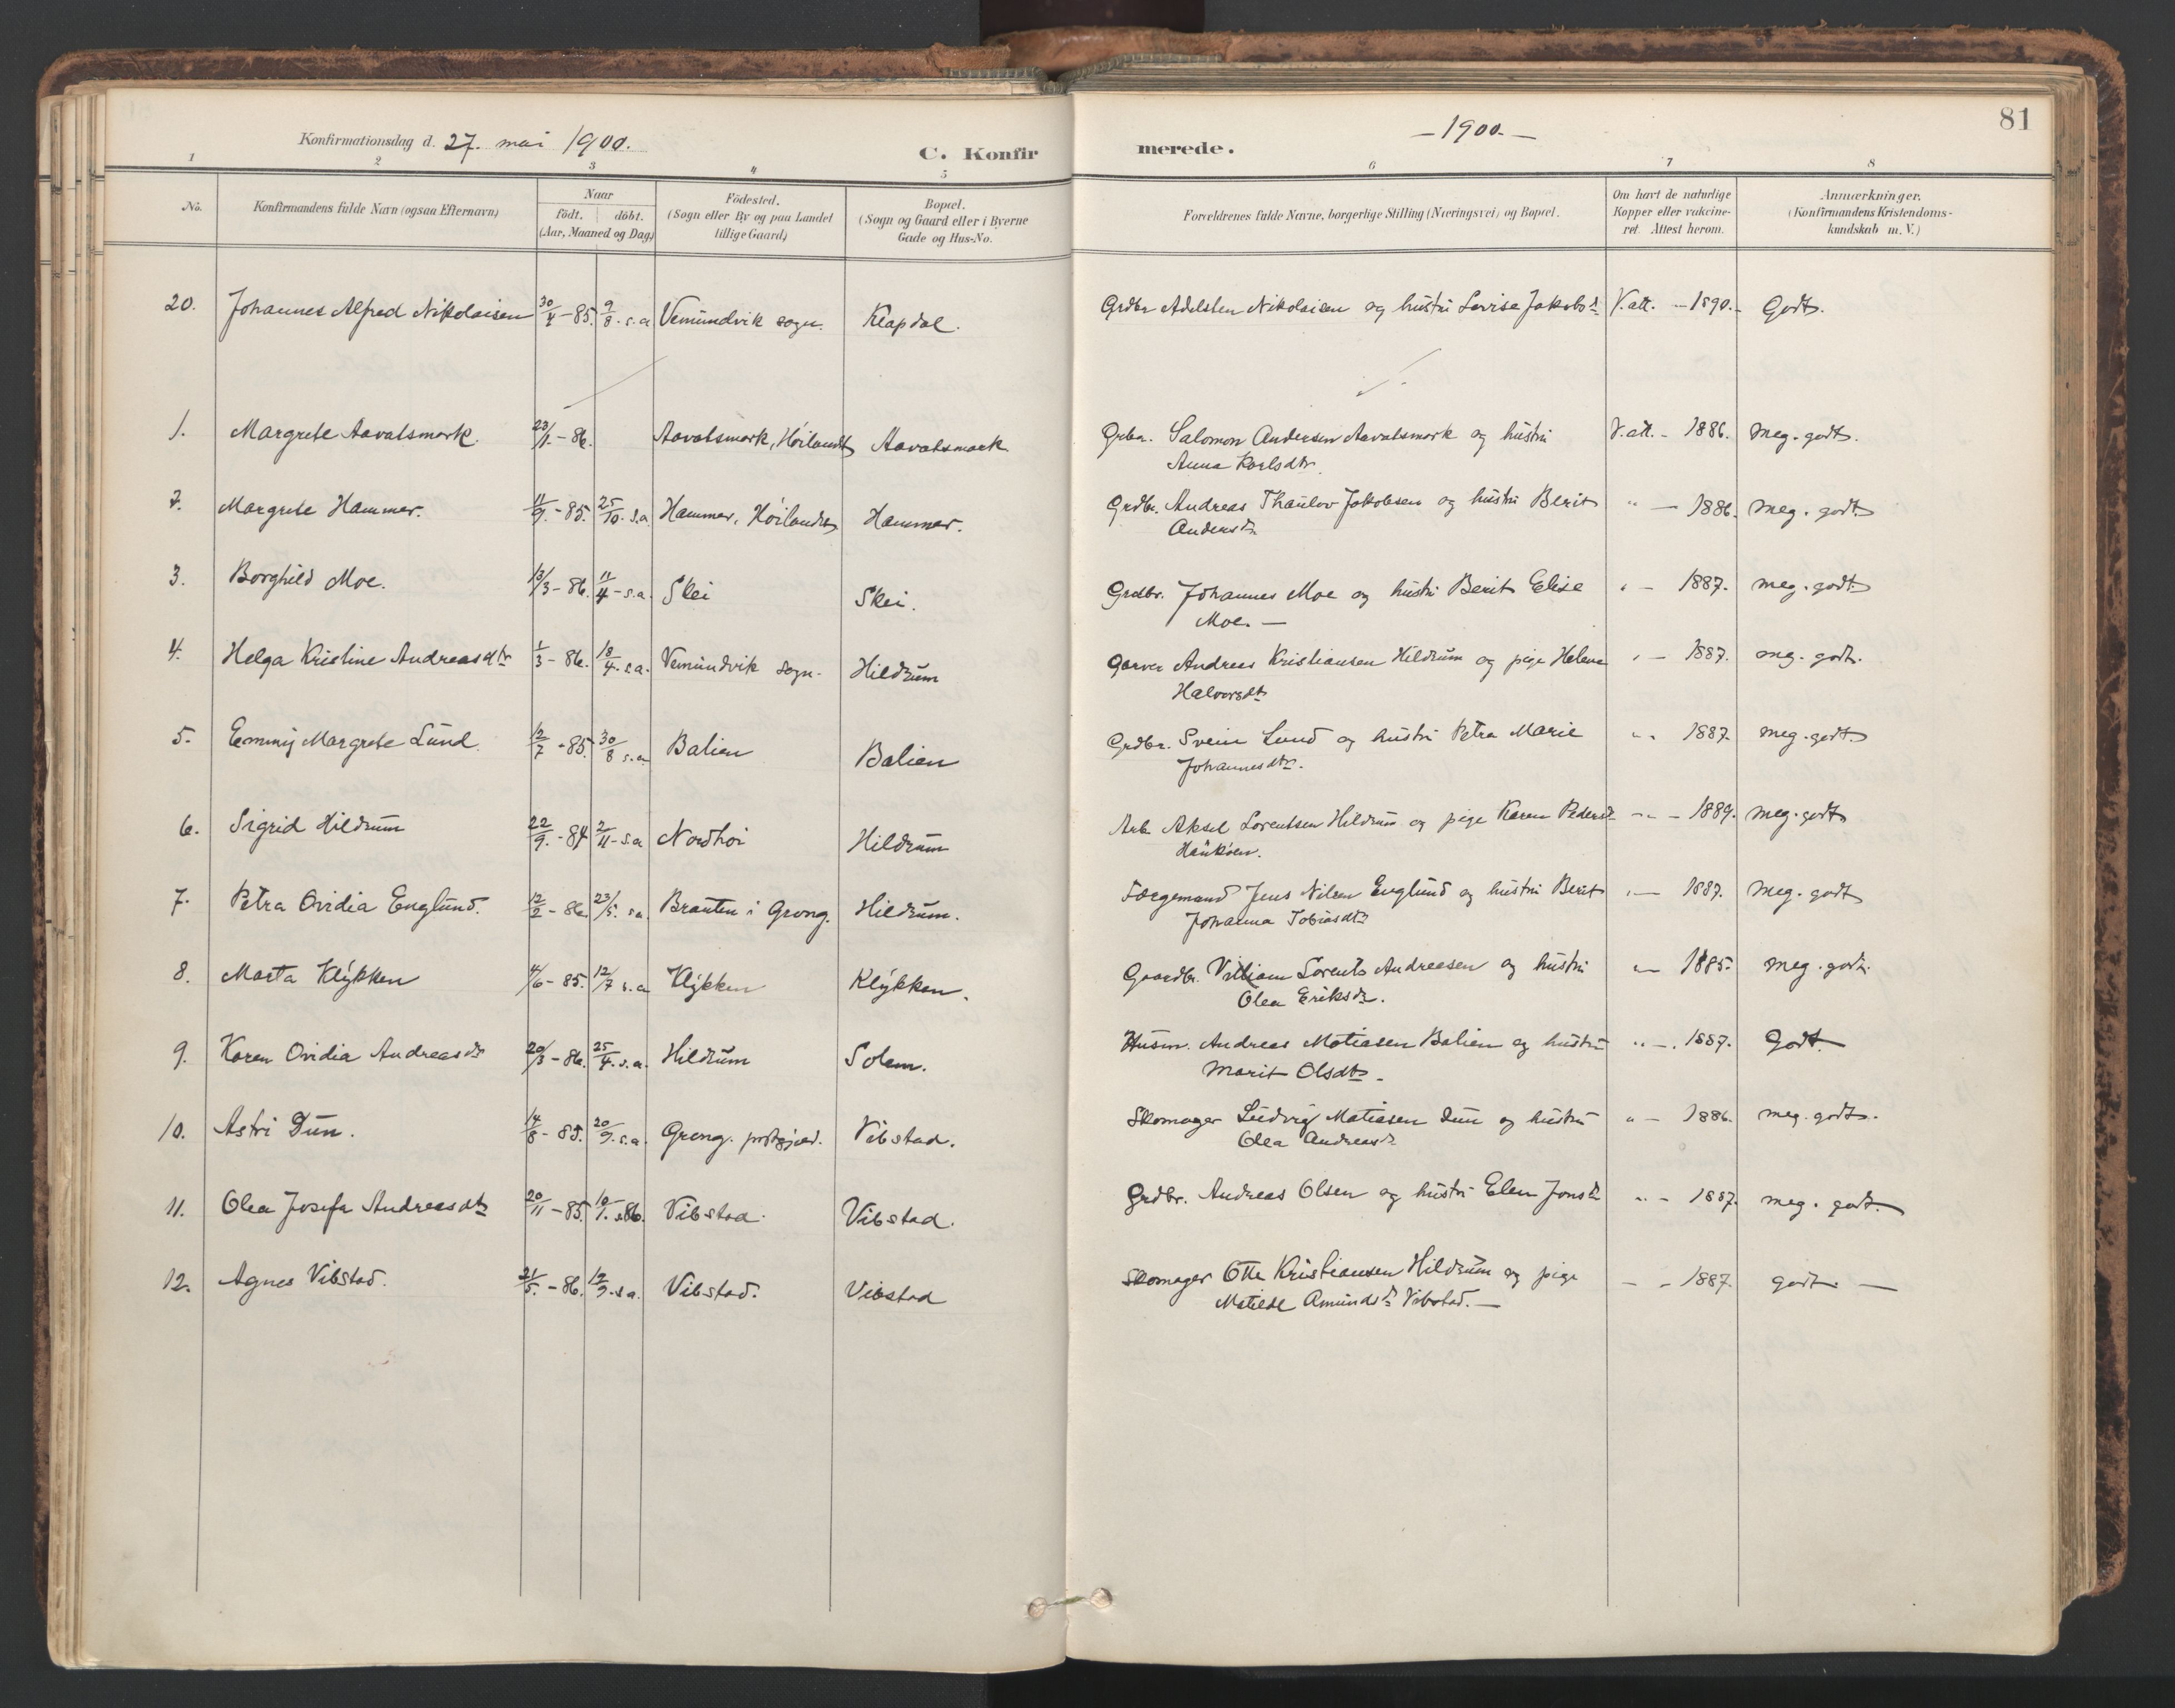 81
Konfirmationsdag d. 27. mai 1900.
C. Konfir
merede.
- 1900. -
1 2 3 4 5 6 7 8
No.
Konfirmandens fulde Navn (ogsaa Efternavn)
Naar
födt. döbt.
(Aar, Maaned og Dag)
Födested.
(Sogn eller By og paa Landet
tillige Gaard)
Bopæl.
(Sogn og Gaard eller i Byerne
Gade og Hus-No.
Forældrenes fulde Navne, borgerlige Stilling (Næringsvei) og Bopæl.
Om havt de naturlige
Kopper eller vakcine-
ret. Attest herom.
Anmærkninger.
(Konfirmandens Kristendoms-
kundskab m. V.)
20. Johannes Alfred Nikolaisen 30/4 - 85. 9/8. s.a Vemundvik sogn. Klapdal. Grdbr Adelsten Nikolaisen og hustru Lovise Jakobsd. V.att. - 1890. - Godt.
1. Margrete Aavatsmark. 23/1. - 86. Aavatsmark, Höilandet Aavatsmark Grbr. Salomon Andersen Aavatsmark og hustru V.att. - 1886. meg. godt.
Anna Karlsdtr.
2. Margrete Hammer. 11/9. - 85. 25/10. s.a Hammer, Höilandet Hammer. Grdbr. Andreas Thaulov Jakobsen og hustru Berit " - 1886. meg. godt.
Andersdr
3. Borghild Moe. 13/3 - 86. 11/4 - s.a. Skei Skei. Grdbr. Johannes Moe og hustru Berit Elise " - 1887. meg. godt.
Moe. -
4. Helga Kristine Andreasdtr 1/3 - 86. 18/4. s.a. Vemundvik sogn. Hildrum Garver Andreas Kristiansen Hildrum og pige Helene " - 1887. meg. godt.
Halvorsdtr
5. Emmy Margrete Lund. 12/7 - 85. 30/8 s.a Balien Balien Grdbr. Svein Lund og hustru Petra Marie " 1887. meg. godt.
Johannesdtr.
6. Sigrid Hildrum 22/9. - 84 2/11 - s.a Nordhoi Hildrum Arb. Aksel Lorentsen Hildrum og pige Karen Pedersd. " - 1889. meg. godt.
7. Petra Ovidia Englund. 12/2 - 86. 23/5. s.a. Brauten i Grong. Hildrum. Færgemand Jens Nilsen Englund og hustru Berit " - 1887. meg. godt
Johanna Tobiasdtr
8. Marta Klykken 4/6 - 85. 12/7 s.a Klykken Klykken. Gaardbr. Villiam Lorents Andreasen og hustru " - 1885. meg. godt.
Olea Eriksdr.
9. Karen Ovidia Andreasdtr 20/3 - 86. 25/4. s.a. Hildrum Solem. Husm. Andreas Matiasen Balien og hustru " - 1887. Godt.
Marit Olsdtr.
10. Astri Dun. 14/8 - 85. 20/9. s.a. Grong. prstgjæld. Vibstad. Skomager Ludvig Matiasen Dun og hustru " - 1886. meg. godt.
Olea Andreasdr
11. Olea Josefa Andreasdtr 20/11 - 85. 10/1. 86. Vibstad. Vibstad. Grdbr. Andreas Olsen og hustru Elen Jonsdr " - 1887. meg. godt.
12. Agnes Vibstad. 21/5. - 86. 12/9. s.a. Vibstad. Vibstad Skomager Otte Kristiansen Hildrum og pige - - 1887. godt. -
Matilde Amundsdr Vibstad. -